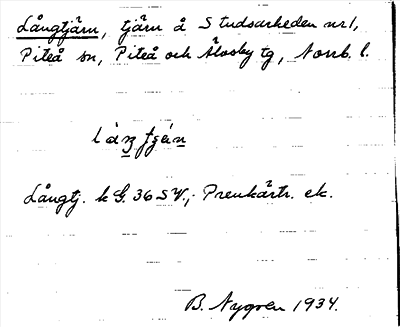 Långtjärn, tjärn å Studsarheden nr 1,
Piteå sn, Piteå och Älvsby tg, Norrb. l.
Långtj. kG. 36 SV.; ek.
B. Nygren 1934.